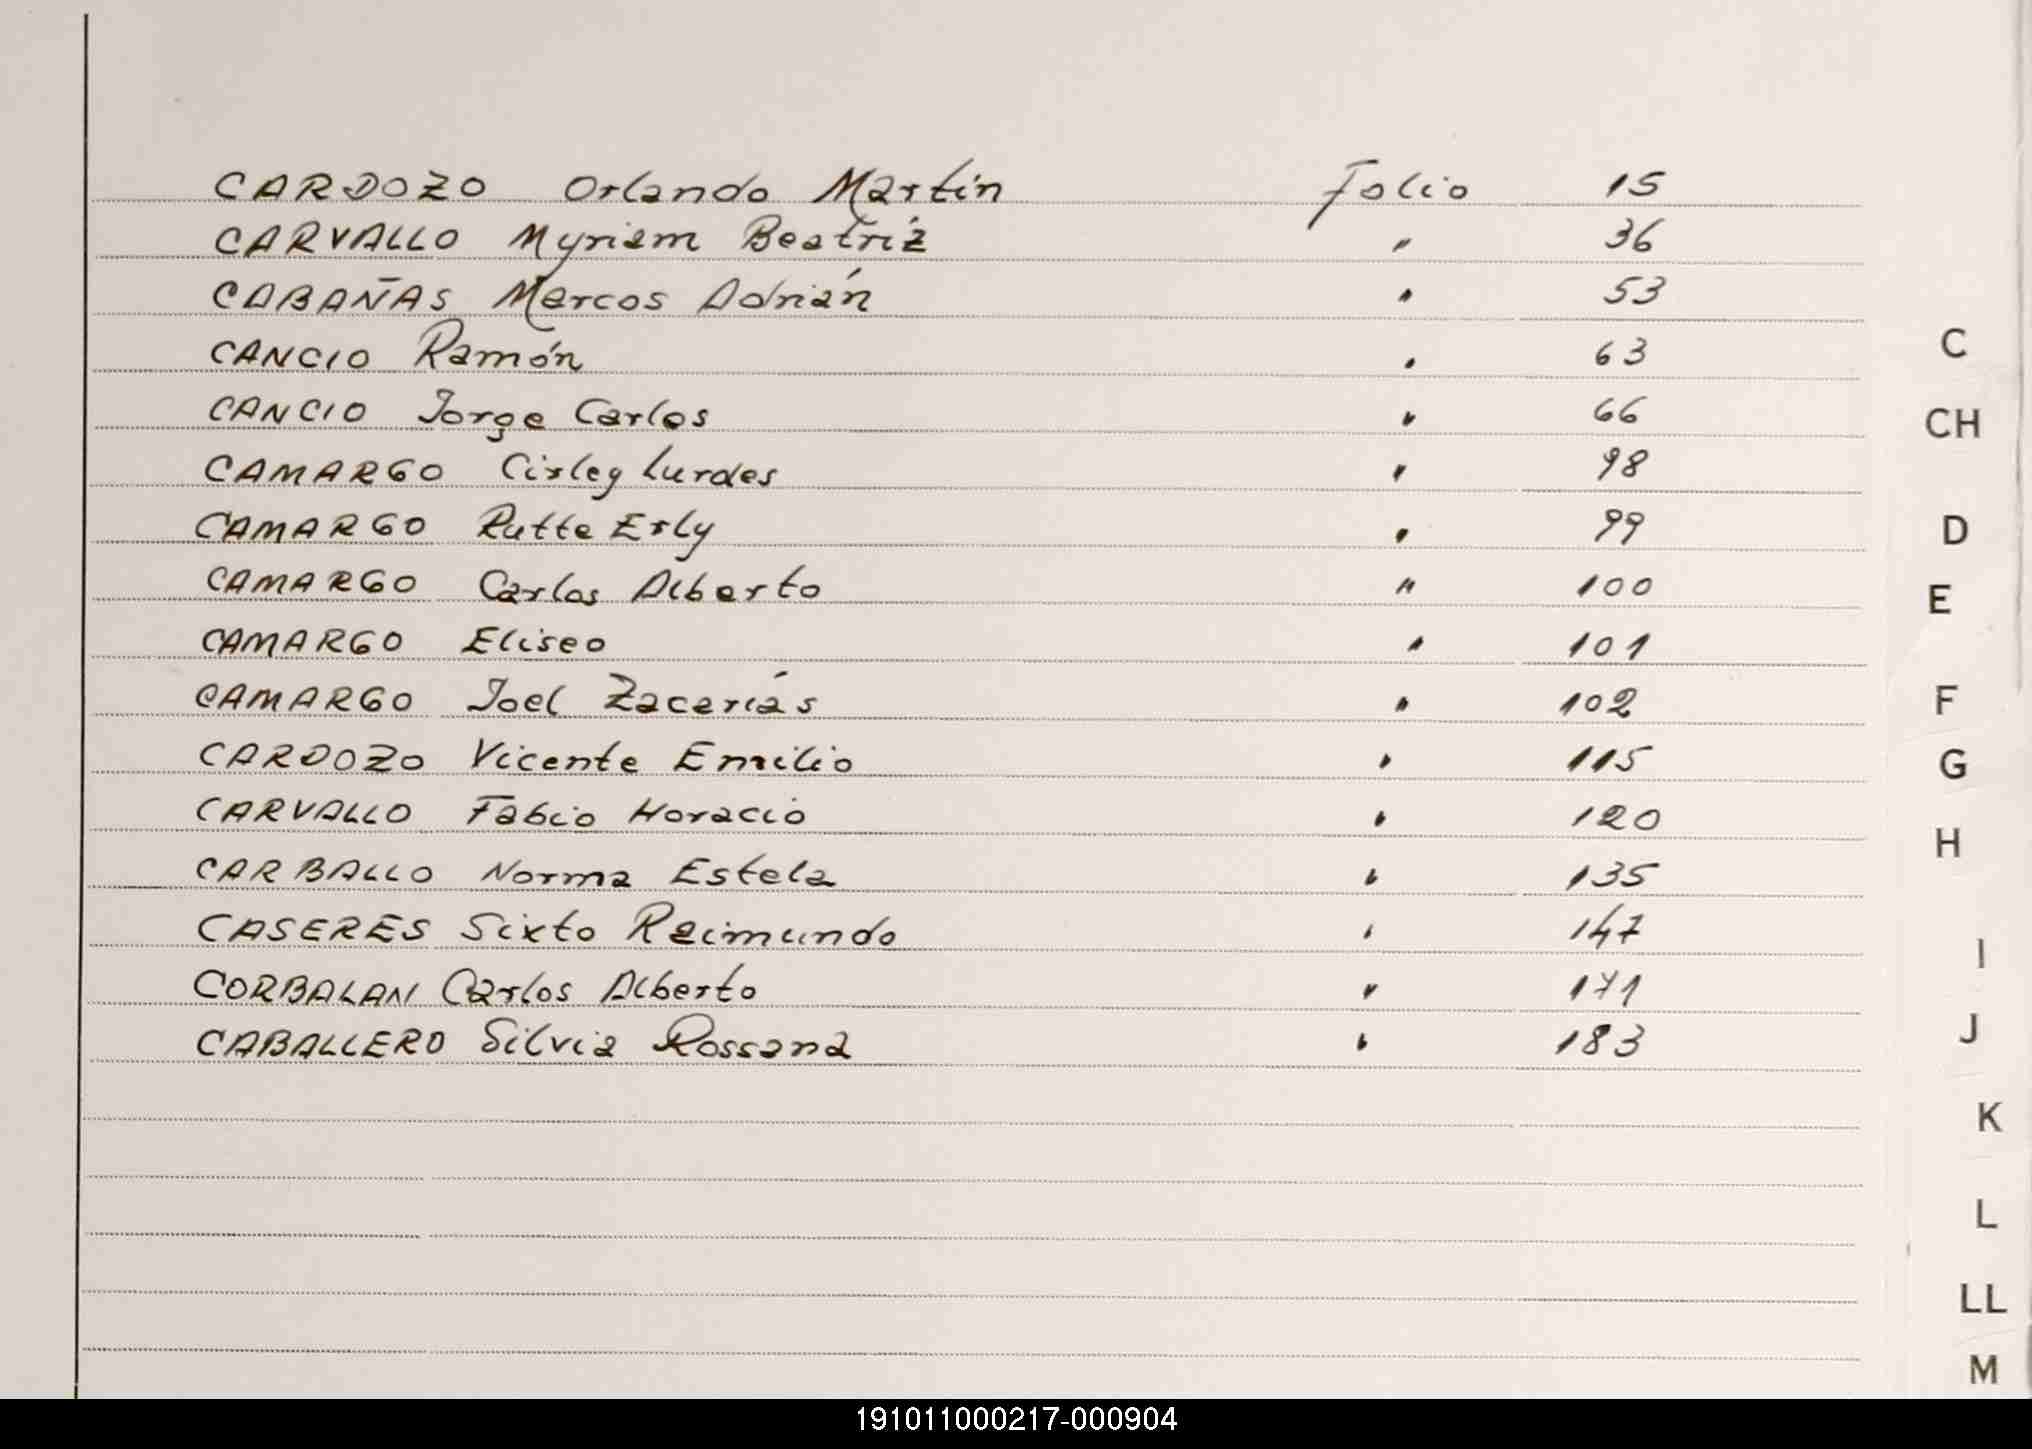 CARDOZO Orlando Martín Folio 15
CARVALLO Myriam Beatríz " 36
CABAÑAS Marcos Adrián " 53
CANCIO Ramón " 63
CANCIO Jorge Carlos " 66
CAMARGO Cirley Lurdes " 98
CAMARGO Rutte Erly " 99
CAMARGO Carlos Alberto " 100
CAMARGO Eliseo " 101
CAMARGO Joel Zacarías " 102
CARDOZO Vicente Emilio " 115
CARVALLO Fabio Horacio " 120
CARBALLO Norma Estela " 135
CASERES Sixto Reimundo " 147
CORBALAN Carlos Alberto " 171
CABALLERO Silvia Rossana " 183
C
CH
D
E
F
G
H
I
J
K
L
LL
M
191011000217-000904